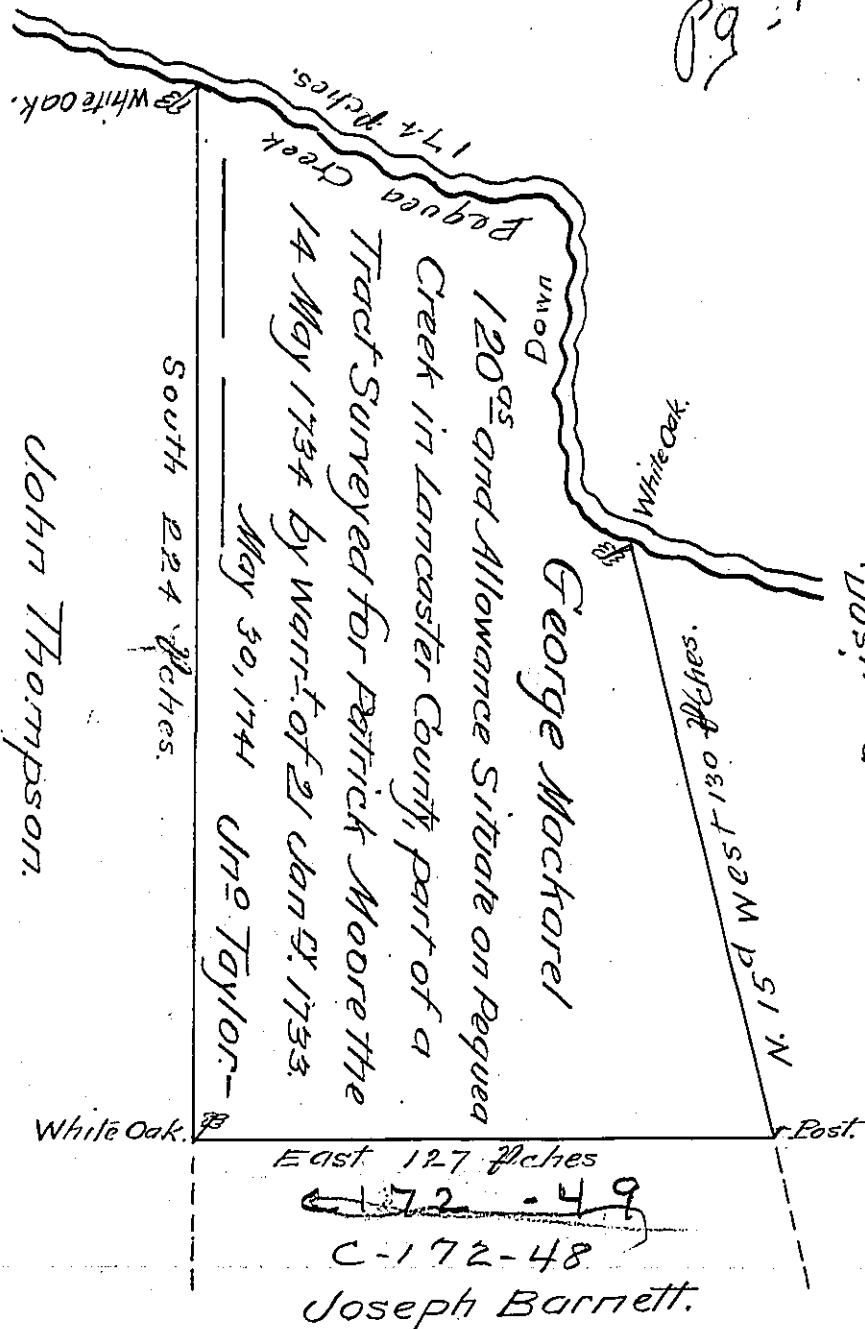 Pg
White oak.
174 Pches.
Down Pequea Creek
White Oak.
N. 15d West 130 Pches.
Post.
George Mackarel
120as and Allowance Situate on Pequea
Creek in Lancaster County, part of a
Tract Surveyed for Patrick Moore the
14 May 1734 by Warrt. of 21 Jany. 1733.
May 30, 1741 Jno Taylor.-
South 224 Pches.
John Thompson.
White Oak.
East 127 Pches
172 - 49
C-172-48
Joseph Barnett.